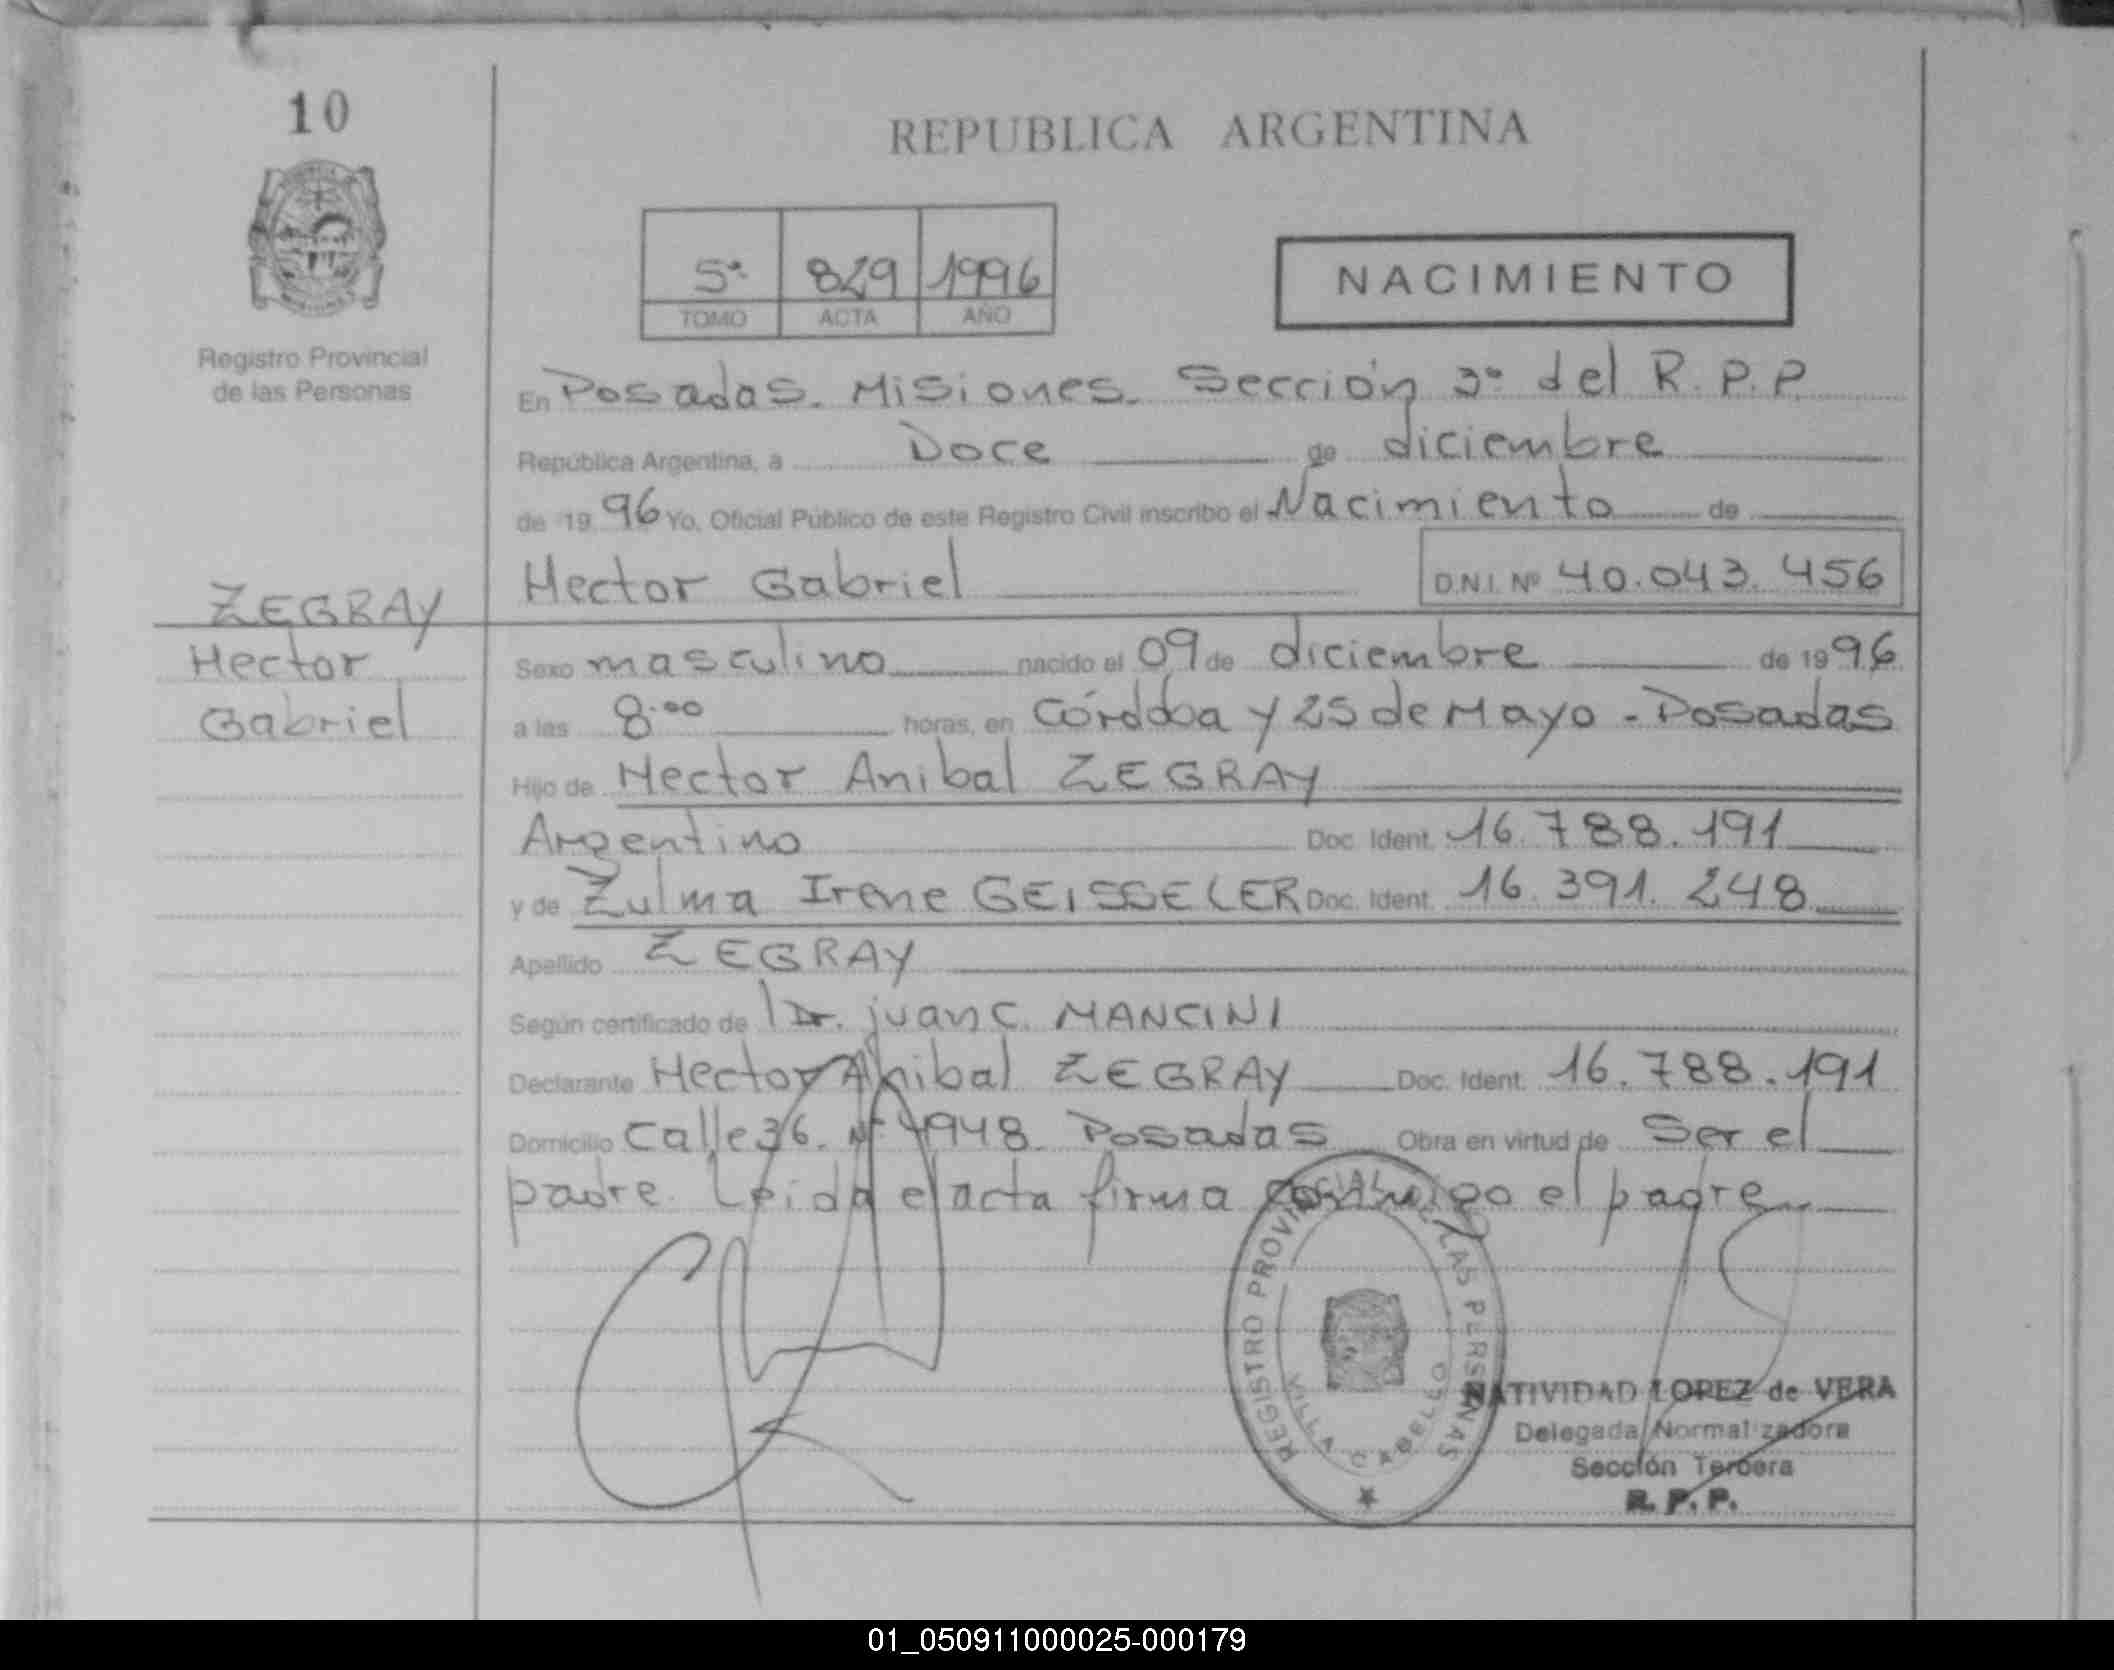 10
Registro Provincial
de las Personas
ZEGRAY
Hector
Gabriel
REPUBLICA ARGENTINA
5º 829 1996
TOMO ACTA AÑO
NACIMIENTO
En Posadas. Misiones. Sección 3º del R.P.P.
República Argentina, a Doce de diciembre
de 1996 Yo, Oficial Público de este Registro Civil inscribo el Nacimiento de
Hector Gabriel D.N.I. Nº 40.043.456
Sexo masculino nacido el 09 de diciembre de 1996
a las 8:00 horas, en Córdoba y 25 de Mayo - Posadas
Hijo de Hector Anibal ZEGRAY
Argentino Doc. Ident. 16.788.191
y de Zulma Irene GEISSELER Doc. Ident. 16.391.248
Apellido ZEGRAY
Según certificado de Dr. juan C. MANCINI
Declarante Hector Anibal ZEGRAY Doc. Ident. 16.788.191
Domicilio Calle 36. Nº 4948. Posadas Obra en virtud de Ser el
padre. Leida el acta firma conmigo el padre
REGISTRO PROVINCIAL DE LAS PERSONAS
VILLA CABELLO
NATIVIDAD LOPEZ de VERA
Delegada Normalizadora
Sección Tercera
R. P. P.
01_050911000025-000179